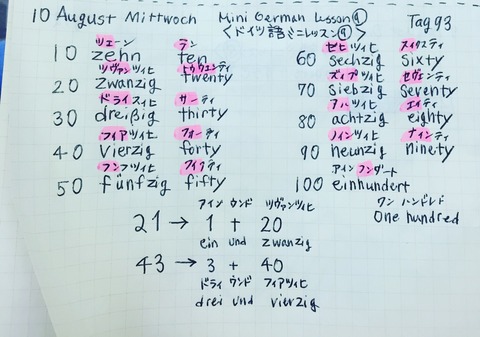 10 August Mittwoch Mini German Lesson⑨ Tag 93
<ドイツ語ミニレッスン⑨>
ツェーン テン
10 zehn ten
ツヴァンツィヒ トゥウェンティ
20 zwanzig twenty
ドライスィヒ サーティ
30 dreißig thirty
フィアツィヒ フォーティ
40 vierzig forty
フンフツィヒ フィフティ
50 fünfzig fifty
ゼヒツィヒ スィクスティ
60 sechzig sixty
ズィプツィヒ セヴェンティ
70 siebzig seventy
アハツィヒ エイティ
80 achtzig eighty
ノインツィヒ ナインティ
90 neunzig ninety
アインフンダート
100 einhundert
ワン ハンドレド
One hundred
アイン ウンド ツヴァンツィヒ
21 → 1 + 20
ein und zwanzig
43 → 3 + 40
ドライ ウンド フィアツィヒ
drei und vierzig